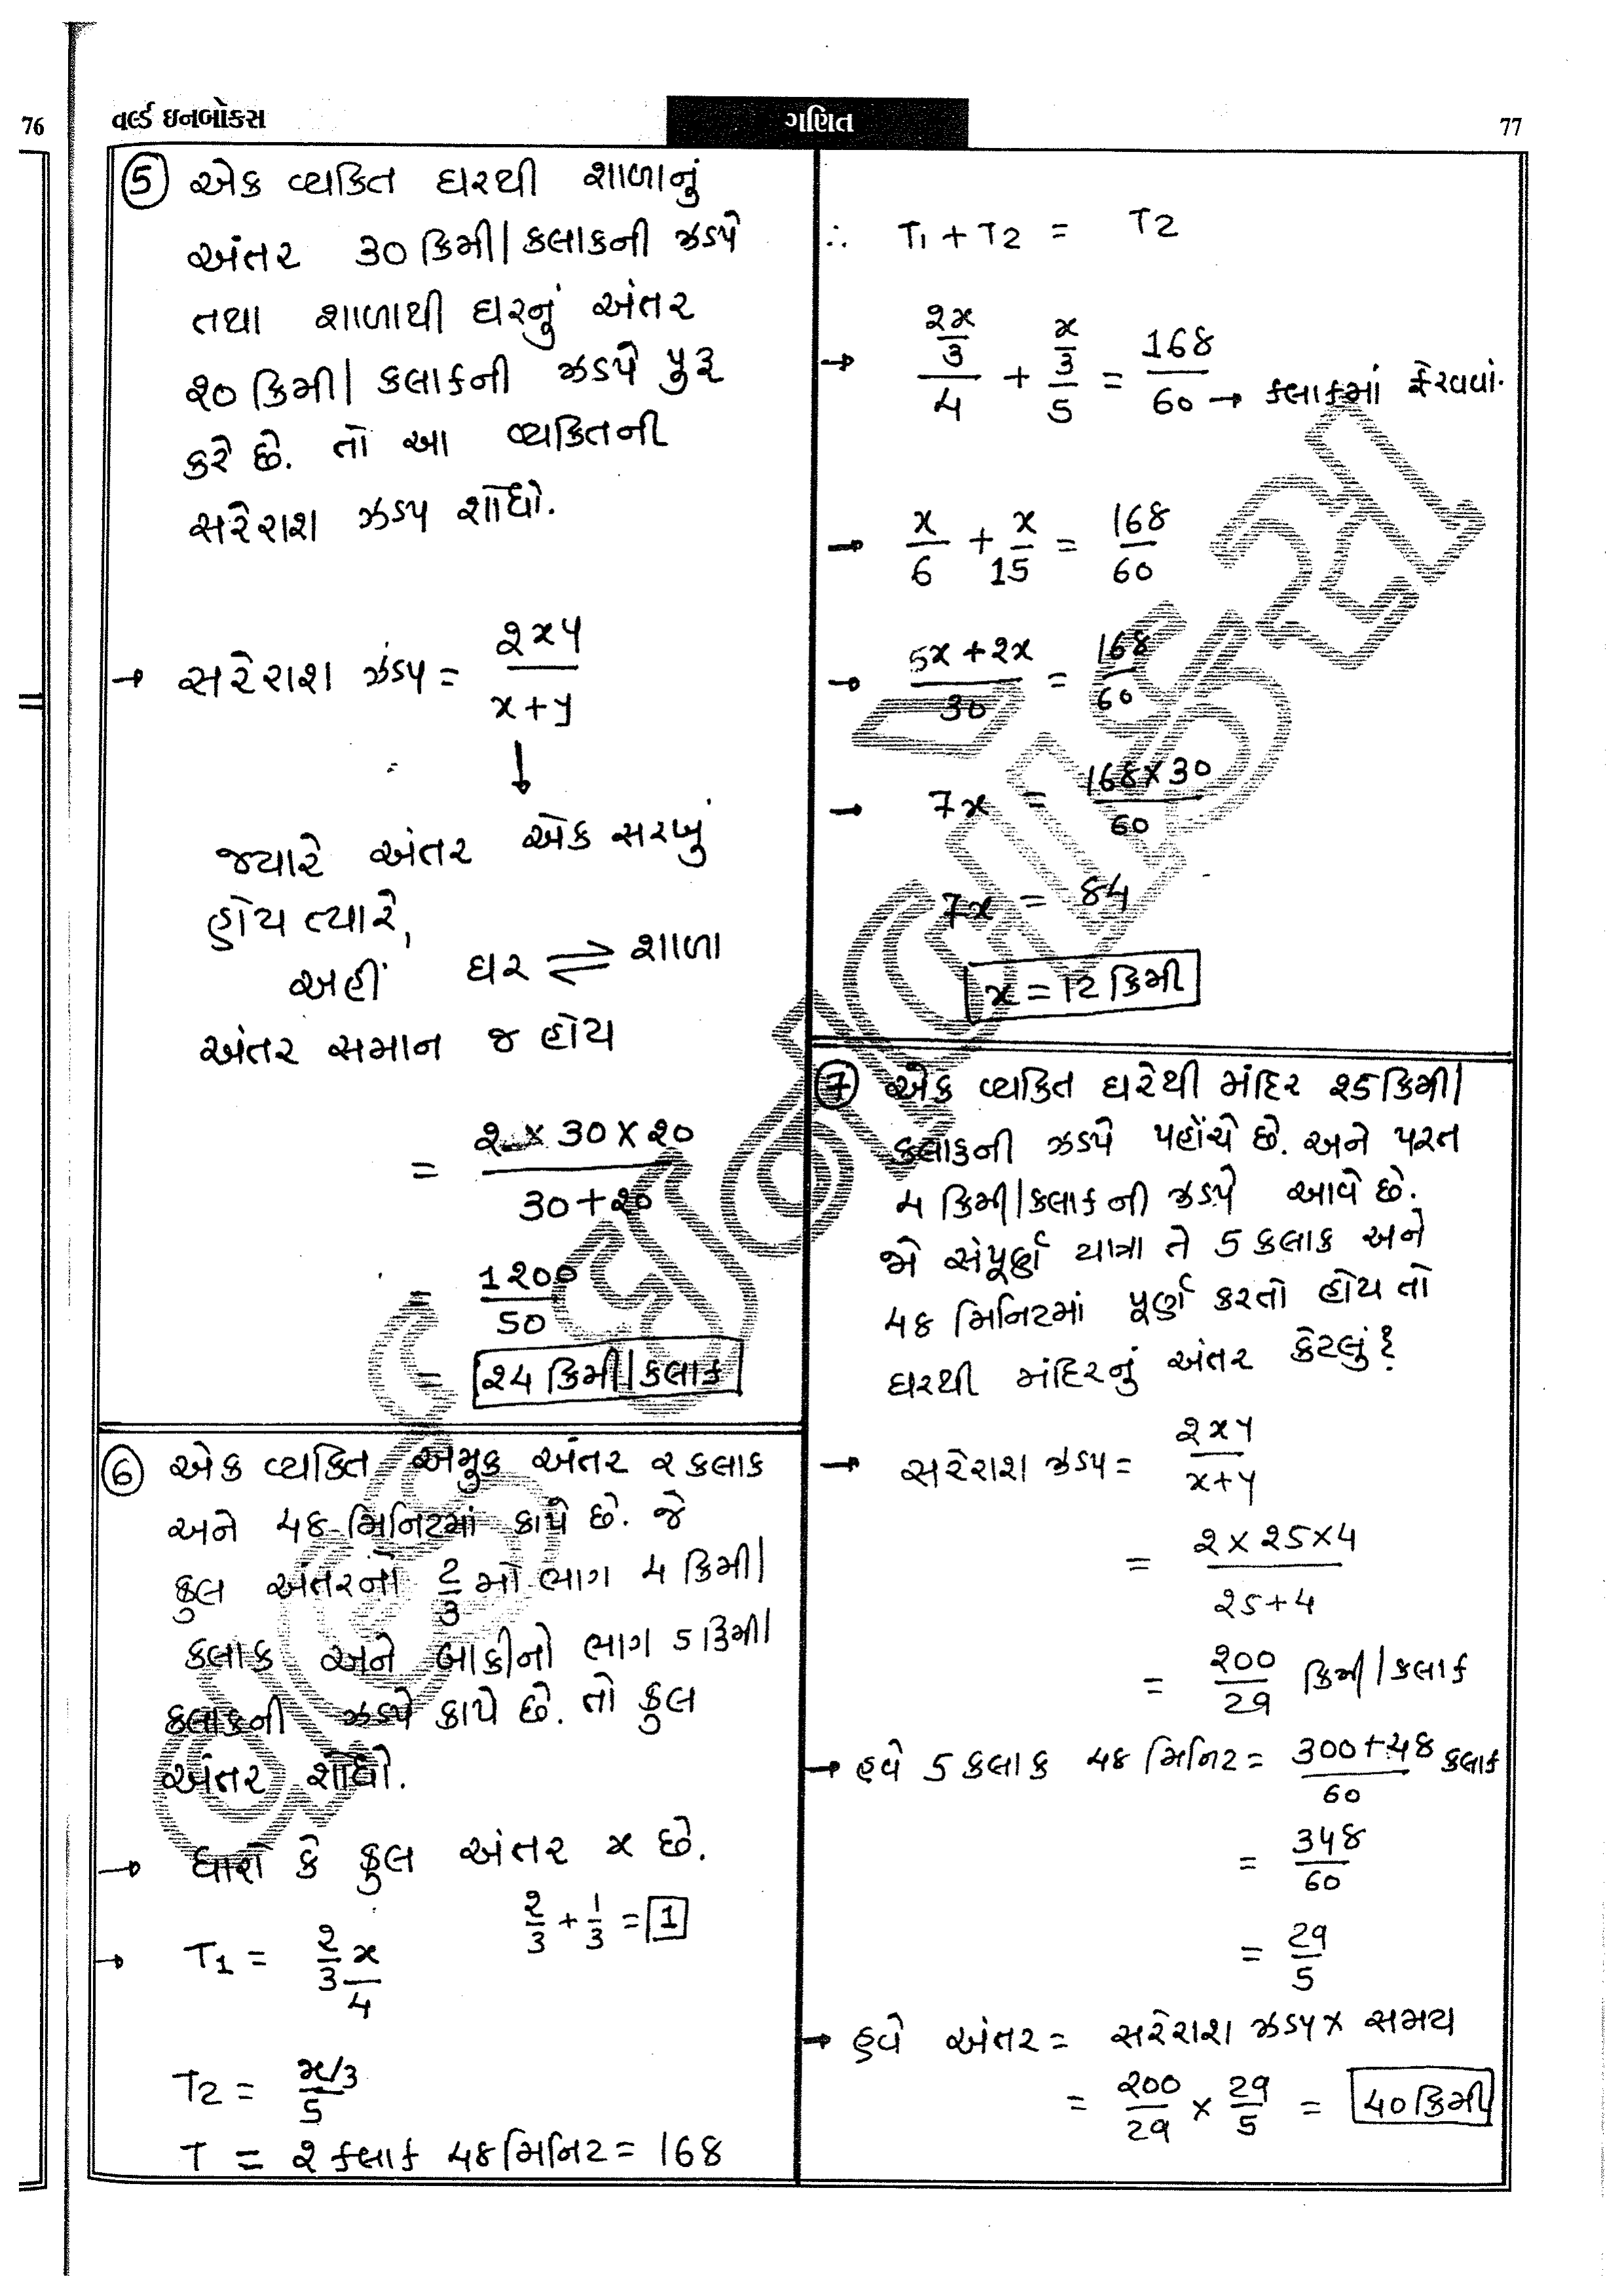 76
વર્લ્ડ ઇનબોક્સ
ગણિત
77
⑤ એક વ્યક્તિ ઘરથી શાળાનું
અંતર 30 કિમી/કલાકની ઝડપે
તથા શાળાથી ઘરનું અંતર
૨0 કિમી/કલાકની ઝડપે પુરૂ
કરે છે. તો આ વ્યક્તિની
સરેરાશ ઝડપ શોધો.
→ સરેરાશ ઝડપ = ૨xy / x+y
↓
જ્યારે અંતર એક સરખું
હોય ત્યારે,
અહીં ઘર ⇌ શાળા
અંતર સમાન જ હોય
= ૨ × 30 × ૨0 / 30+૨0
= 1૨00 / 50
= ૨4 કિમી/કલાક
⑥ એક વ્યક્તિ અમુક અંતર ૨ કલાક
અને 4૪ મિનિટમાં કાપે છે. જે
કુલ અંતરનો 2/3 મો ભાગ 4 કિમી/
કલાક અને બાકીનો ભાગ 5 કિમી/
કલાકની ઝડપે કાપે છે. તો કુલ
અંતર શોધો.
→ ધારો કે કુલ અંતર x છે.
૨/3 + 1/3 = 1
→ T1 = ૨/3 x / 4
T2 = x/3 / 5
T = ૨ કલાક 4૪ મિનિટ = 16૪
∴ T1 + T2 = T2
→ ૨x/3 / 4 + x/3 / 5 = 16૪ / 60 → કલાકમાં ફેરવવાં.
→ x/6 + x/15 = 16૪/60
→ 5x + ૨x / 30 = 16૪ / 60
→ 7x = 16૪ × 30 / 60
7x = ૪4
x = 12 કિમી
⑦ એક વ્યક્તિ ઘરેથી મંદિર ૨5 કિમી/
કલાકની ઝડપે પહોંચે છે. અને પરત
4 કિમી/કલાક ની ઝડપે આવે છે.
જો સંપૂર્ણ યાત્રા તે 5 કલાક અને
4૪ મિનિટમાં પૂર્ણ કરતો હોય તો
ઘરથી મંદિરનું અંતર કેટલું?
→ સરેરાશ ઝડપ = ૨xy / x+y
= ૨ × ૨5 × 4 / ૨5 + 4
= ૨00 / 29 કિમી/કલાક
→ હવે 5 કલાક 4૪ મિનિટ = 300 + 4૪ / 60 કલાક
= 34૪ / 60
= 29 / 5
→ હવે અંતર = સરેરાશ ઝડપ × સમય
= ૨00/29 × 29/5 = 40 કિમી